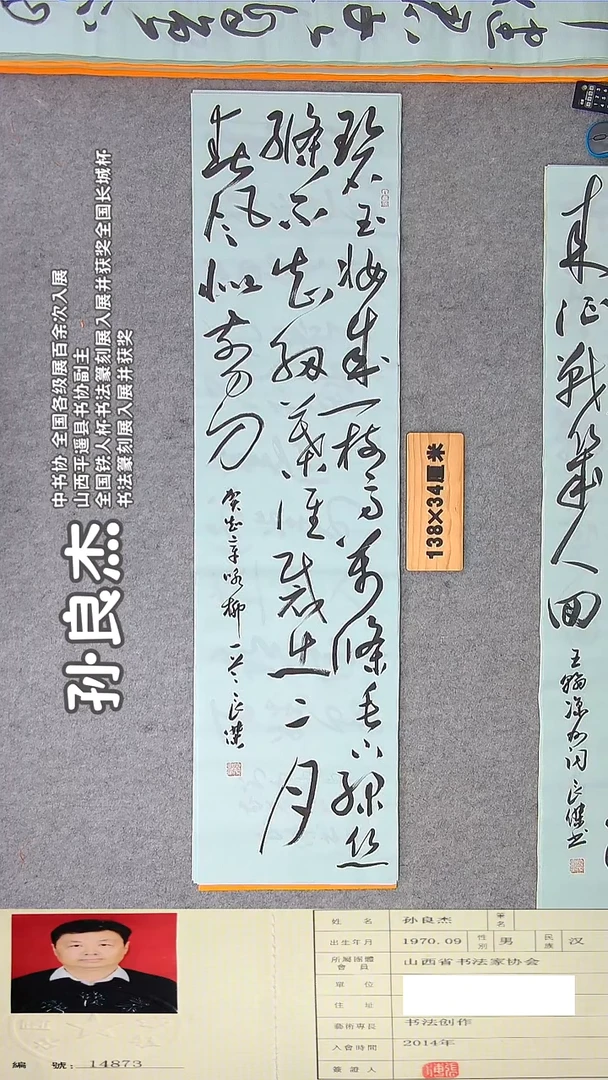 碧玉妝成一樹高萬條垂下綠丝
縧不知細葉誰裁出二月
春风似剪刀
賀知章咏柳一首 良傑
来征戰幾人回
王翰凉州词 良傑书
138×34厘米
中书协 全国各级展百余次入展
山西平遥县书协副主
全国铁人杯书法篆刻展入展并获奖全国长城杯
书法篆刻展入展并获奖
孙良杰
姓 名 孙良杰 筆名
出生年月 1970.09 性别 男 民族 汉
所屬團體會員 山西省书法家协会
單 位
住 址
藝術專長 书法创作
入會時間 2014年
簽證人
編 號：14873